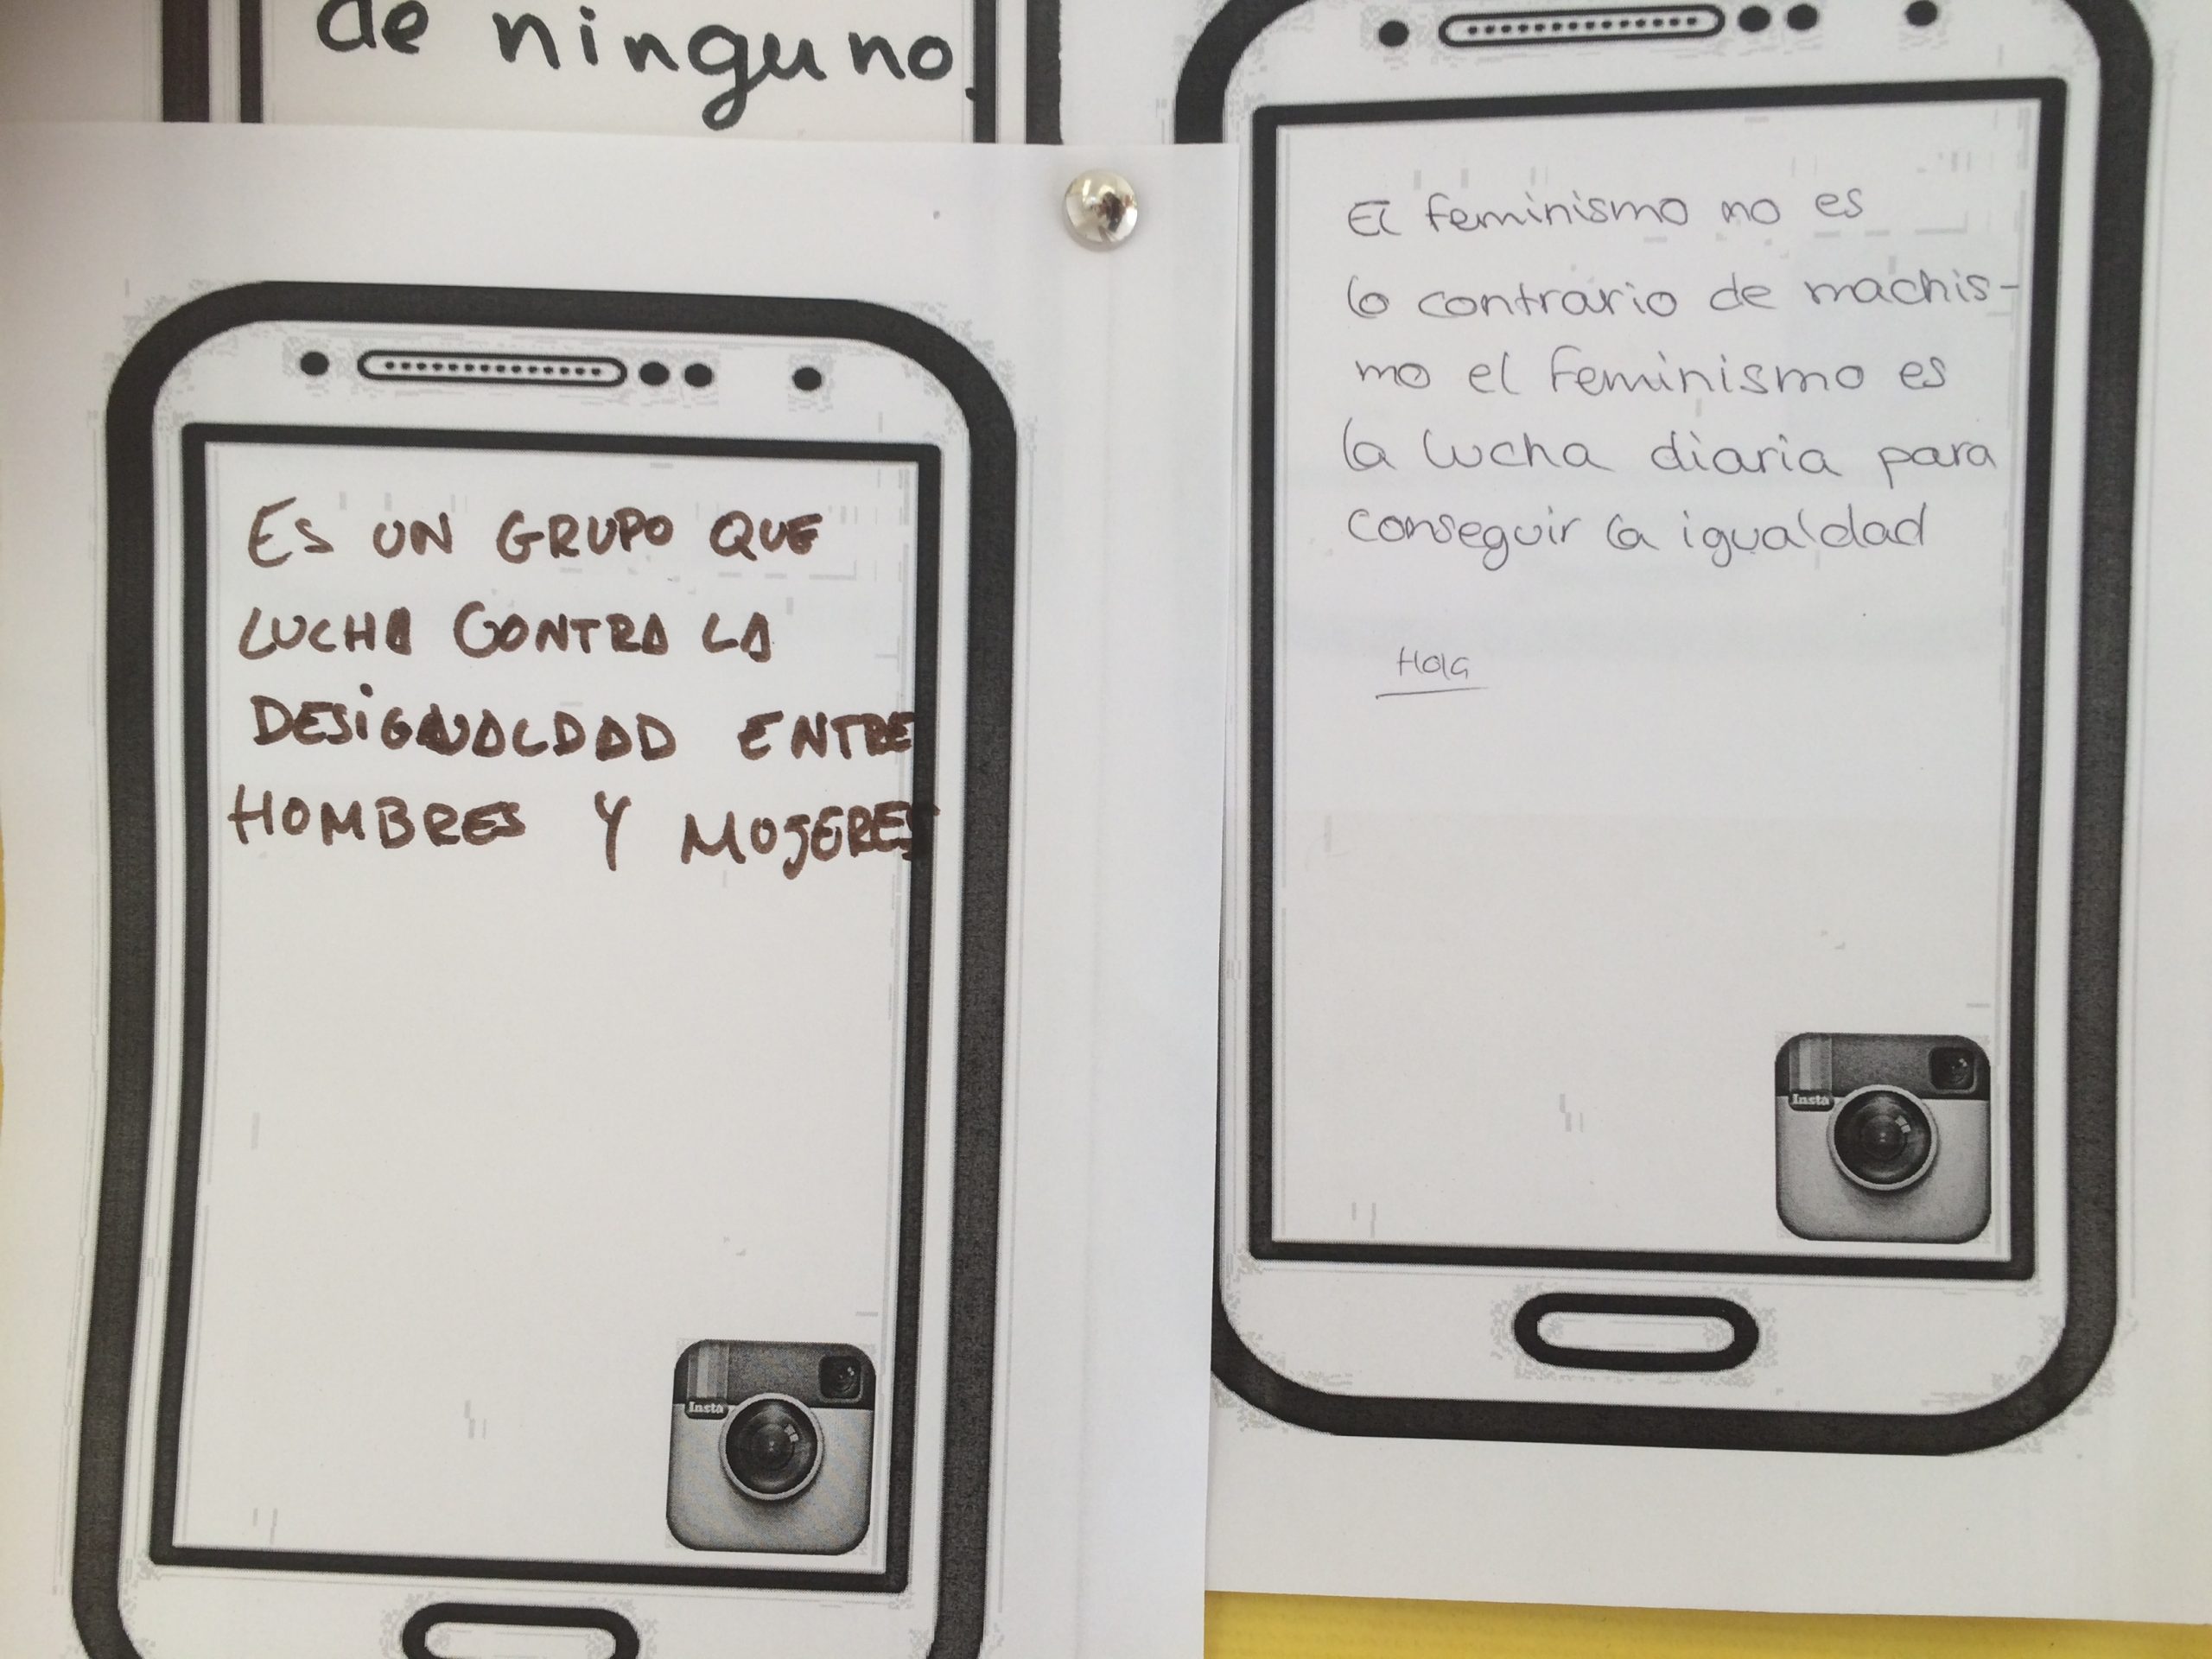 de ninguno.
ES UN GRUPO QUE
LUCHA CONTRA LA
DESiGUALDAD ENTRE
HOMBRES Y MUJERES
Insta
El feminismo no es
lo contrario de machis-
mo el feminismo es
la lucha diaria para
conseguir la igualdad
Hola
Insta